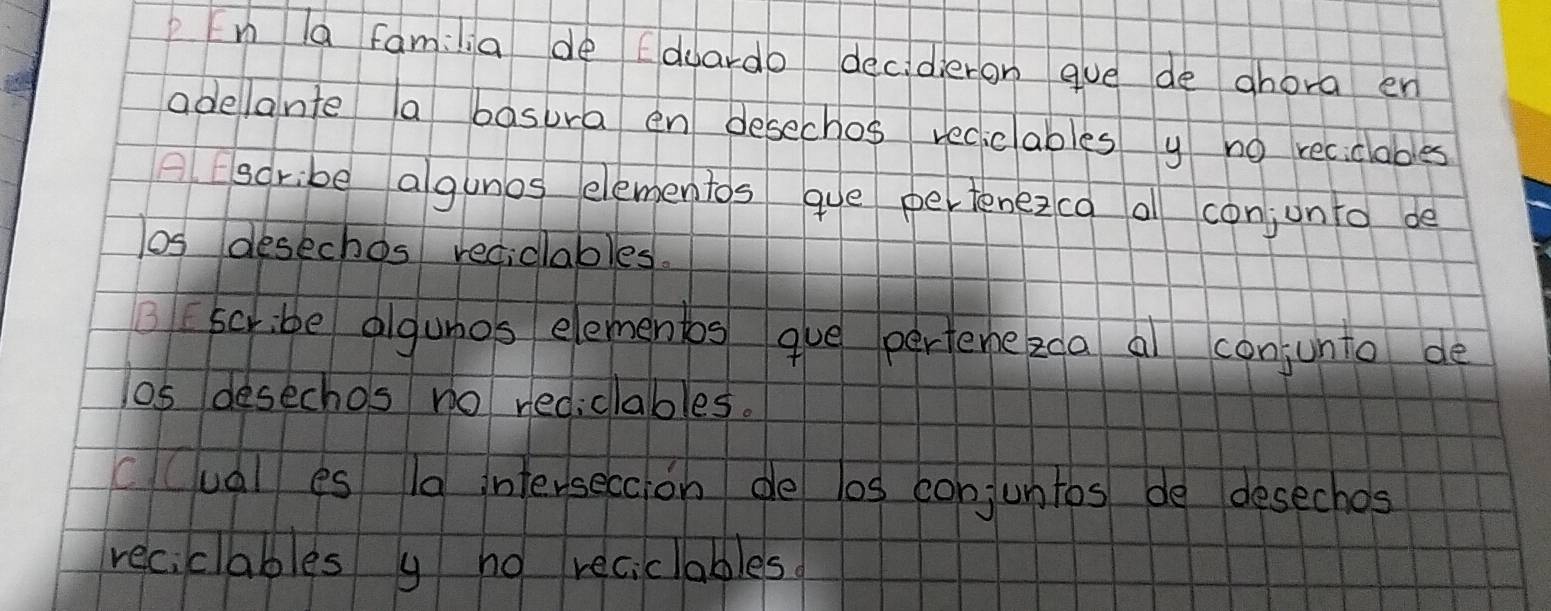 P En la familia de Eduardo decidieron que de ahora en
adelante la basura en desechos reciclables y no reciclables
A. Escribe algunos elementos que pertenezca al conjunto de
los desechos reciclables.
B Escribe algunos elementos que pertenezca al conjunto de
los desechos no reciclables.
C Cual es la intersección de los conjuntos de desechos
reciclables y no reciclables.